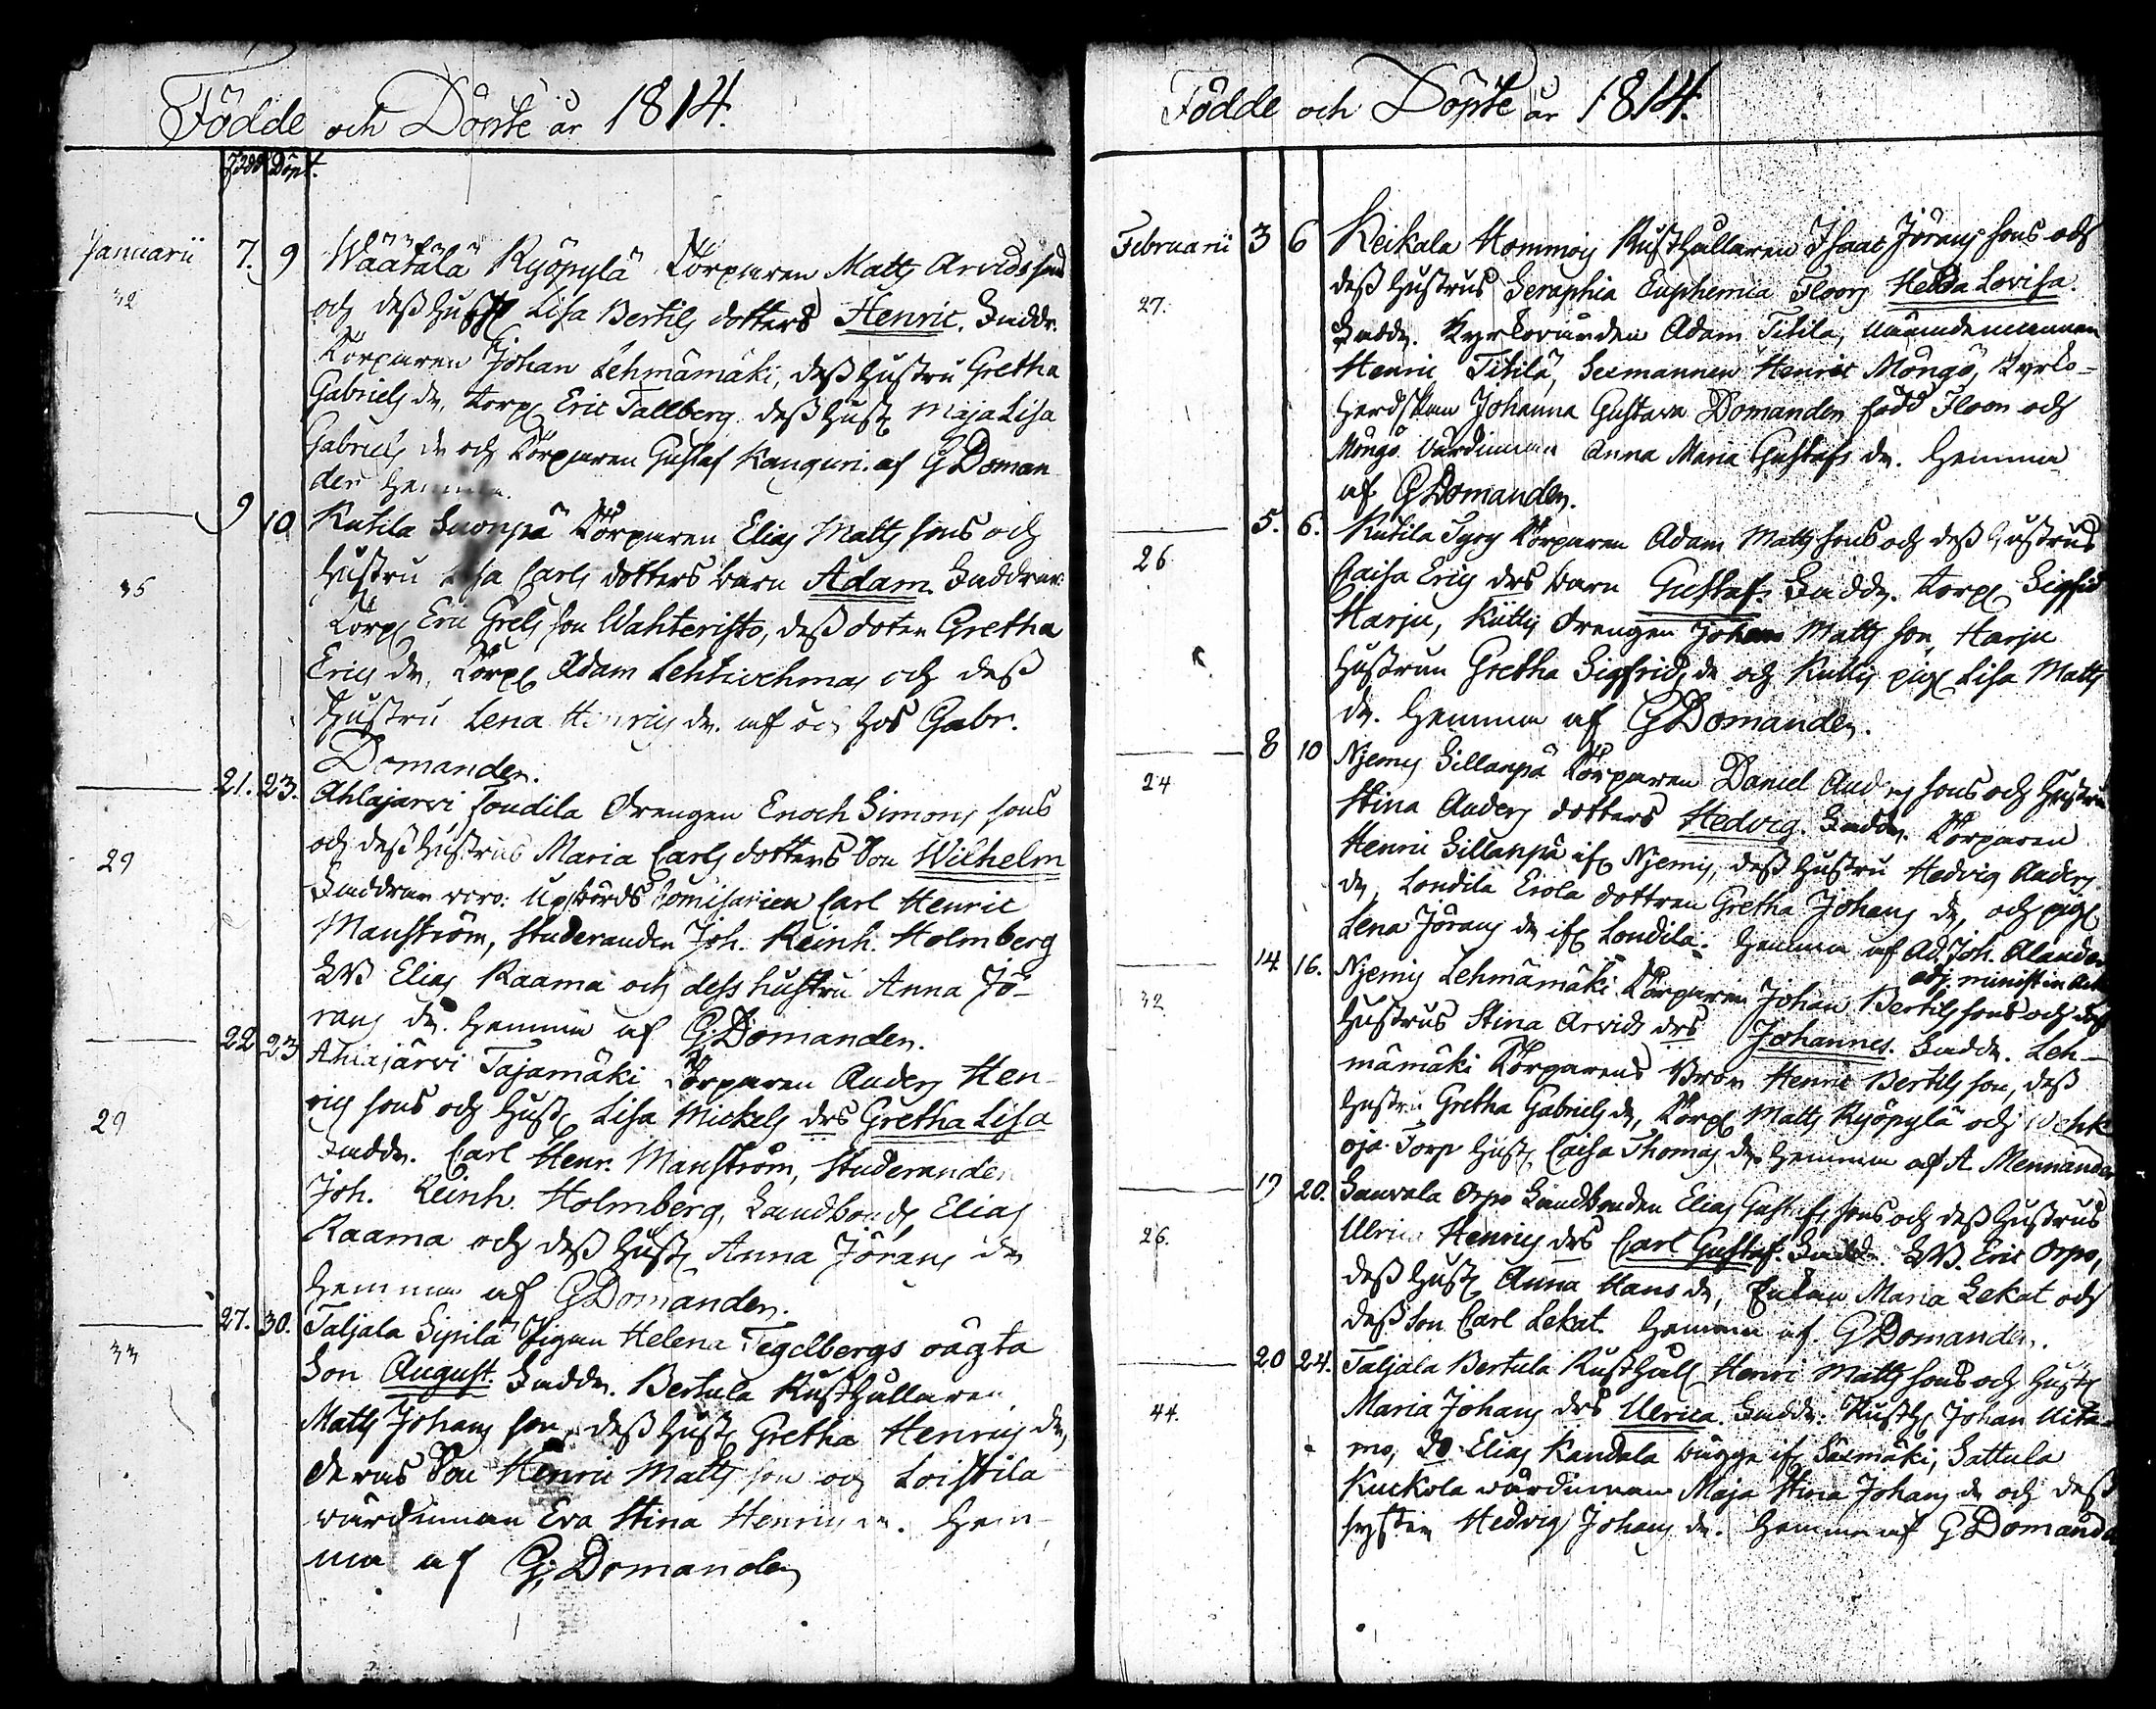 Födde och Döpte år 1814.
Född Döpt.
Januarii 7. 9 Wäätälä Kyöpylä Torparen Matts Arvidssons
32 och dess Hustr Lisa Bertils dotters Henric. Faddr.
Torparen Johan Lehmämäki, dess Hustru Gretha
Gabriels dr. Torp. Eric Tallberg dess Hust. Maja Lisa
Gabriels dr och Torparen Gustaf Kanguri. af G Doman
der hemma.
9 10 Kutila Suonpä Torparen Elias Matts sons och
Hustru Lisa Carls dotters barn Adam. Faddrar
35 Torp. Eric Grels son Wahteristo, dess doter Gretha
Erics dr. Torp. Adam Lehtivehmas och dess
Hustru Lena Henrics dr. af och hos Gabr.
Domander.
21. 23. Ahlajärvi Jondila Drengen Enoch Simons sons
och dess hustrus Maria Carls dotters Son Wilhelm
29 Faddrar voro: Upbörds Comisarien Carl Henric
Manström, Studeranden Joh. Reinh. Holmberg
LB Elias Raama och dess hustru Anna Jö-
rans dr. hemma af G. Domander.
22 23 Ahlajärvi Tajamäki Torparen Anders Hen-
rics sons och Hust. Lisa Mickels drs Gretha Lisa
29 Faddr. Carl Henr. Manström, Studeranden
Joh. Reinh. Holmberg, Landbond. Elias
Raama och dess Hust. Anna Jörans dr
hemma af G Domander.
27. 30. Taljala Sipilä Pigan Helena Tegelbergs oägta
33 Son August. Faddr. Bertula Rusthållaren
Matts Johans son, dess Hust. Gretha Henrics dr,
deras Son Henric Matts son och Loistila
värdinnan Eva Stina Henrics dr. Hem-
ma af G. Domander
Födde och Döpte år 1814.
Februarii 3 6 Keikala Hommois Rusthållaren Isaac Jörans sons och
dess Hustrus Seraphia Euphemia Floors Hedda Lovisa.
27. Faddr. Kyrkovärden Adam Titila, Nämndemannen
Henric Titilä, Sexmannen Henric Mongö, Kyrko-
herdskan Johanna Gustava Domander född Floor och
Mongö Värdinnan Anna Maria Gustafs dr. hemma
af G Domander.
5. 6. Kutila Torparen Adam Matts sons och dess Hustrus
26 Caisa Erics drs barn Gustaf. Faddr. Torp. Sigfrid
Harju, Kuttis Drengen Johan Matts son, Harju
Hustrun Gretha Sigfrids dr och Kuttis pig. Lisa Matts
dr. hemma af G Domander.
8 10 Njemis Sillanpä Torparen Daniel Anders sons och Hustru
24 Stina Anders dotters Hedvig. Faddr. Torparen
Henric Sillanpä if. Njemis, dess Hustru Hedvig Anders
dr, Londila Erola dottren Gretha Johans dr, och pig.
Lena Jörans dr if. Londila. hemma af Ad. Joh. Alander
adj. minist. in
14 16. Njemis Lehmämäki Torparen Johan Bertils sons och dess
32 Hustrus Stina Arvids drs Johannes. Faddr. Leh-
mämäki Torparens Bror Henric Bertils son, dess
Hustru Gretha Gabriels dr, Torp. Matts Kyöpylä och
oja Torp Hust. Caisa Thomas dr. hemma af A. Mennander
19 20. Sauvala Orpo Landbonden Elias Gustafs sons och dess Hustrus
26. Ulrica Henrics drs Carl Gustaf. Faddr. LB. Eric Orpo,
dess Hust. Anna Hans dr, Enkan Maria Lekat och
dess Son Carl Lekat. hemma af G Domander.
20 24. Taljala Bertula Rusthåll. Henric Matts sons och Hust.
44. Maria Johans drs Ulrica. Faddr. Rusth. Johan Uita-
mo, do Elias Kandala bägge if. Säxmäki, Sattula
Kuckola värdinnan Maja Stina Johans dr och dess
syster Hedvig Johans dr. hemma af G Domander